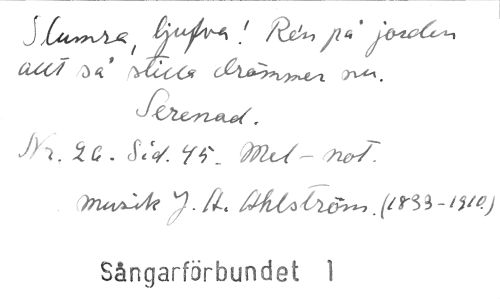 Slumra, ljufva! Re'n på jorden
allt så stilla drömmer nu.
Serenad.
Nr. 26. Sid. 45. Mel-not.
musik J. A. Ahlström. (1833-1910.)
Sångarförbundet 1